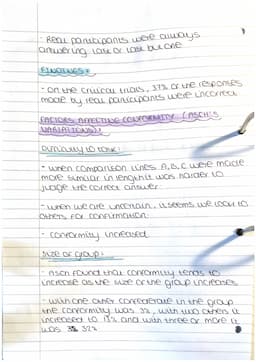 - Real participants were always
answering last or last but one
FINDINGS:
- On the critical trials, 37% of the responses
made by real participants were incorrect
FACTORS AFFECTING CONFORMITY (ASCH'S
VARIATIONS):
Difficulty to task:
- When comparison lines A, B, C were made
more similar in length it was harder to
judge the correct answer.
- When we are uncertain, it seems we look to
others for confirmation.
- Conformity increased
Size of group:
- Asch found that conformity tends to
increase as the size of the group increases
- With one other confederate in the group
the conformity was 3%, with two others it
increased to 13% and with three or more it
was 32%